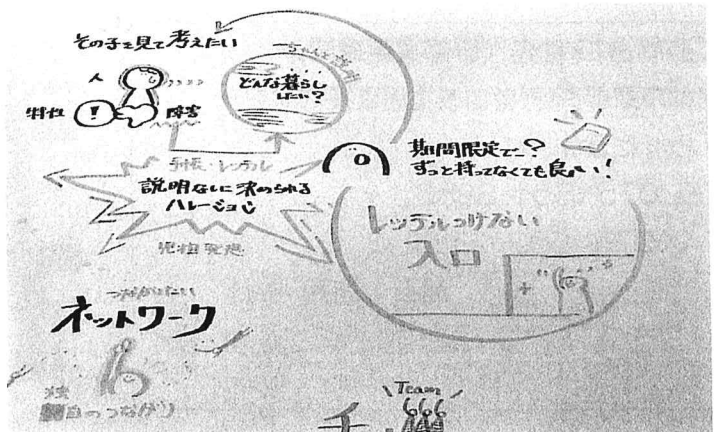 その子を見て考えたい
人
特性
!
障害
どんな暮らし
したい?
手帳・レッテル
説明なしに決められる
ハレーション
期間限定で-?
ずっと持ってなくても良い!
レッテルつけない
入口
つながりたい
ネットワーク
自のつながり
Team
チ